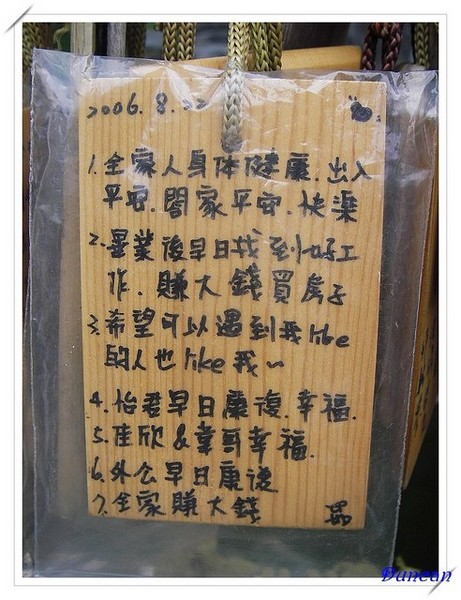 2006. 8. 22
1. 全家人身体健康. 出入
平安. 閤家平安. 快樂
2. 畢業後早日找到好工
作. 賺大錢買房子
3. 希望可以遇到我like
的人也like我~
4. 怡君早日康復. 幸福.
5. 佳欣&韋哥幸福.
6. 外公早日康復
7. 全家賺大錢
Duncan